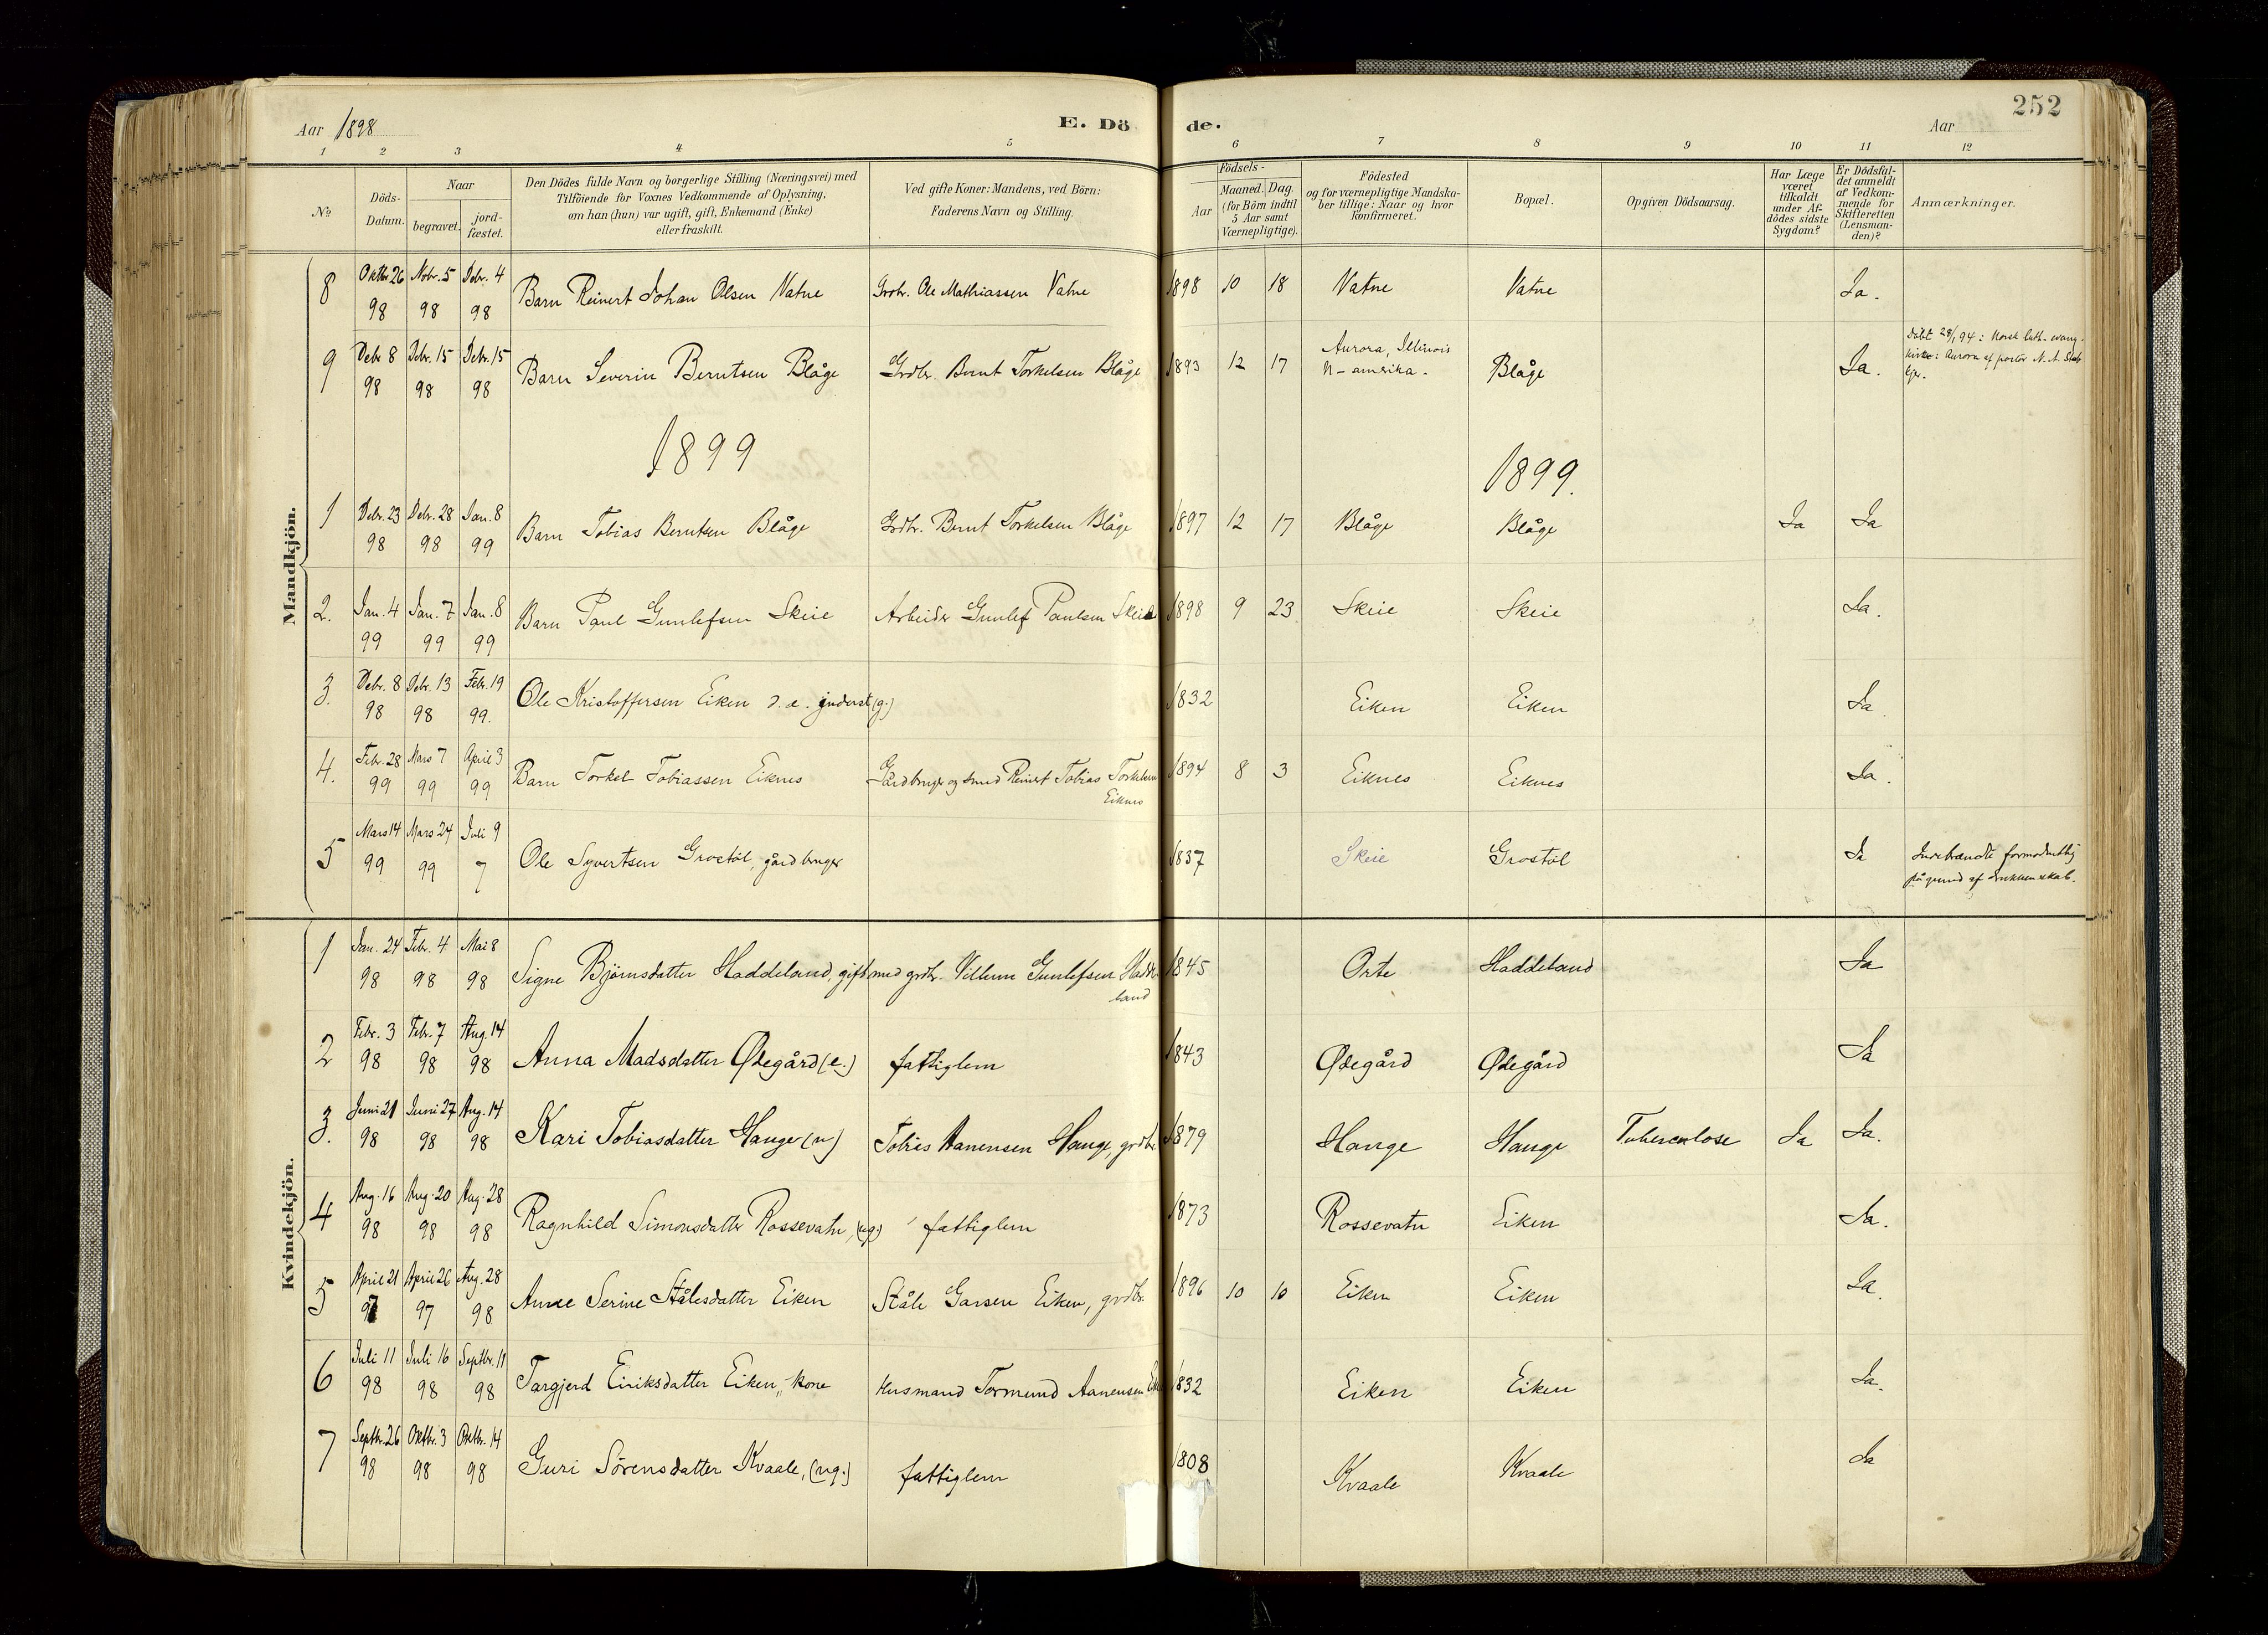 Aar 1898
E. Dö
de.
Aar
252
1 2 3 4 5 6 7 8 9 10 11 12
No.
Döds-
Datum.
Naar
begravet.
jord-
fæstet.
Den Dödes fulde Navn og borgerlige Stilling (Næringsvei) med
Tilföiende for Voxnes Vedkommende af Oplysning,
om han (hun) var ugift, gift, Enkemand (Enke)
eller fraskilt.
Ved gifte Koner: Mandens, ved Börn:
Faderens Navn og Stilling.
Födsels-
Aar
Maaned. Dag.
(for Börn indtil
5 Aar samt
Værnepligtige).
Födested
og for værnepligtige Mandska-
ber tillige: Naar og hvor
konfirmeret.
Bopæl.
Opgiven Dödsaarsag.
Har Læge
været
tilkaldt
under Af-
dödes sidste
Sygdom?
Er Dödsfal-
det anmeldt
af Vedkom-
mende for
Skifteretten
(Lensman-
den)?
Anmærkninger.
Mandkjön.
8 Oktbr 26 Nobr. 5 Debr. 4 Barn Reinert Johan Olsen Vatne Grdbr. Ole Mathiassen Vatne 1898 10 18 Vatne Vatne Ja.
98 98 98
9 Debr 8 Debr. 15 Debr. 15 Barn Severin Berntsen Blåge Grdbr. Bernt Torkelsen Blåge 1893 12 17 Aurora, Illinois Blåge Ja. Døbt 28/1 94: Norsk luth. evang.
98 98 98 N-amerika. kirke: Aurora af pastor N. A.
1899 1899.
1 Debr. 23 Debr. 28 Jan. 8 Barn Tobias Berntsen Blåge Grdbr. Bernt Torkelsen Blåge 1897 12 17 Blåge Blåge Ja Ja
98 98 99
2. Jan. 4 Jan. 7 Jan. 8 Barn Paul Gunlefsen Skeie Arbeider Gunlef Paulsen Skeie 1898 9 23 Skeie Skeie Ja.
99 99 99
3. Debr. 8 Debr. 13 Febr. 19 Ole Kristoffersen Eiken d. e. inderst (g.) 1832 Eiken Eiken Ja
98 98 99.
4. Febr. 28 Mars 7 April 3 Barn Torkel Tobiassen Eiknes Gårdbruger og smed Reinert Tobias Torkelsen 1894 8 3 Eiknes Eiknes Ja.
99 99 99 Eiknes
5 Mars 14 Mars 24 Juli 9 Ole Syvertsen Grostøl, gårdbruger 1837 Skeie Grostøl Ja Indebrændte formodentlig
99 99 7 på grund af drukkenskab.
Kvindekjön.
1 Jan. 24 Febr. 4 Mai 8 Signe Bjørnsdatter Haddeland, gift med grdbr. Villum Gunlefsen Hadde 1845 Orte Haddeland Ja
98 98 98 land
2 Febr. 3 Febr. 7 Aug. 14 Anna Madsdatter Ødegård (e.) fattiglem 1843 Ødegård Ødegård Ja
98 98 98
3. Juni 21 Juni 27 Aug. 14 Kari Tobiasdatter Hauge (u) Tobias Aanensen Hauge, grdbr. 1879 Hauge Hauge Tuberculose Ja Ja.
98 98 98
4 Aug. 16 Aug. 20 Aug. 28 Ragnhild Simonsdatter Rossevatn, (ug.) fattiglem 1873 Rossevatn Eiken Ja.
98 98 98
5 April 21 April 26 Aug. 28 Anne Serine Stålesdatter Eiken Ståle Eiken, grdbr. 1896 10 10 Eiken Eiken Ja.
97 97 98
6 Juli 11 Juli 16 Septbr. 11 Targjerd Eiriksdatter Eiken, kone Husmand Tormund Aanensen 1832 Eiken Eiken Ja.
98 98 98
7 Septbr. 26 Oktbr. 3 Oktbr. 14 Guri Sørensdatter Kvaale, (ug.) fattiglem 1808 Kvaale Kvaale Ja
98 98 98